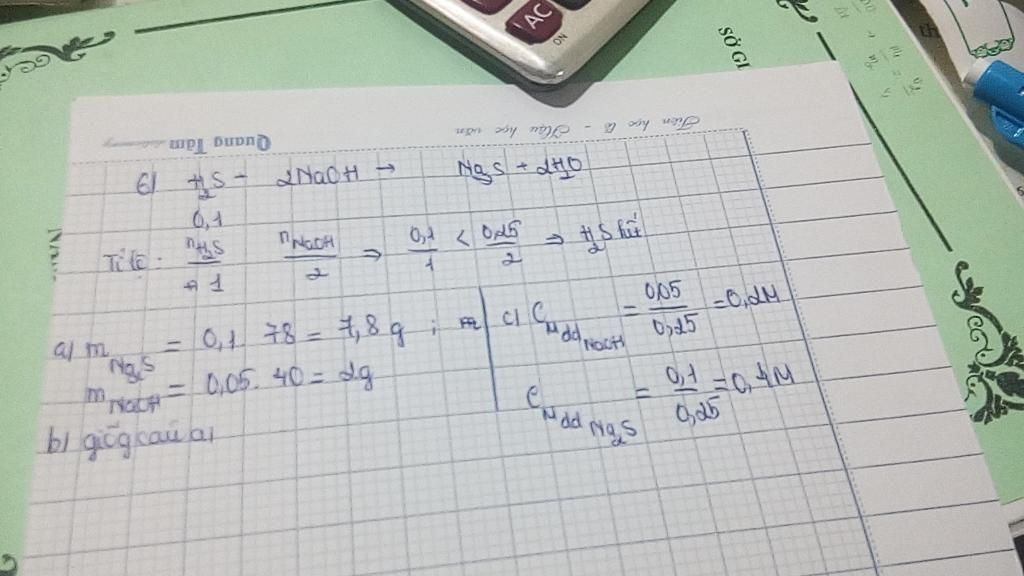 AC
ON
SỞ GI
Tiên học lễ - Hậu học văn
Quang Tâm
6) H2S + 2NaOH → Na2S + 2H2O
0,1
Tỉ lệ: nH2S/1 nNaOH/2 ⇒ 0,1/1 < 0,25/2 ⇒ H2S hết
a) mNa2S = 0,1 . 78 = 7,8g ;
mNaOH = 0,05 . 40 = 2g
b) giống câu a)
c) CM dd NaOH = 0,05/0,25 = 0,2M
CM dd Na2S = 0,1/0,25 = 0,4M